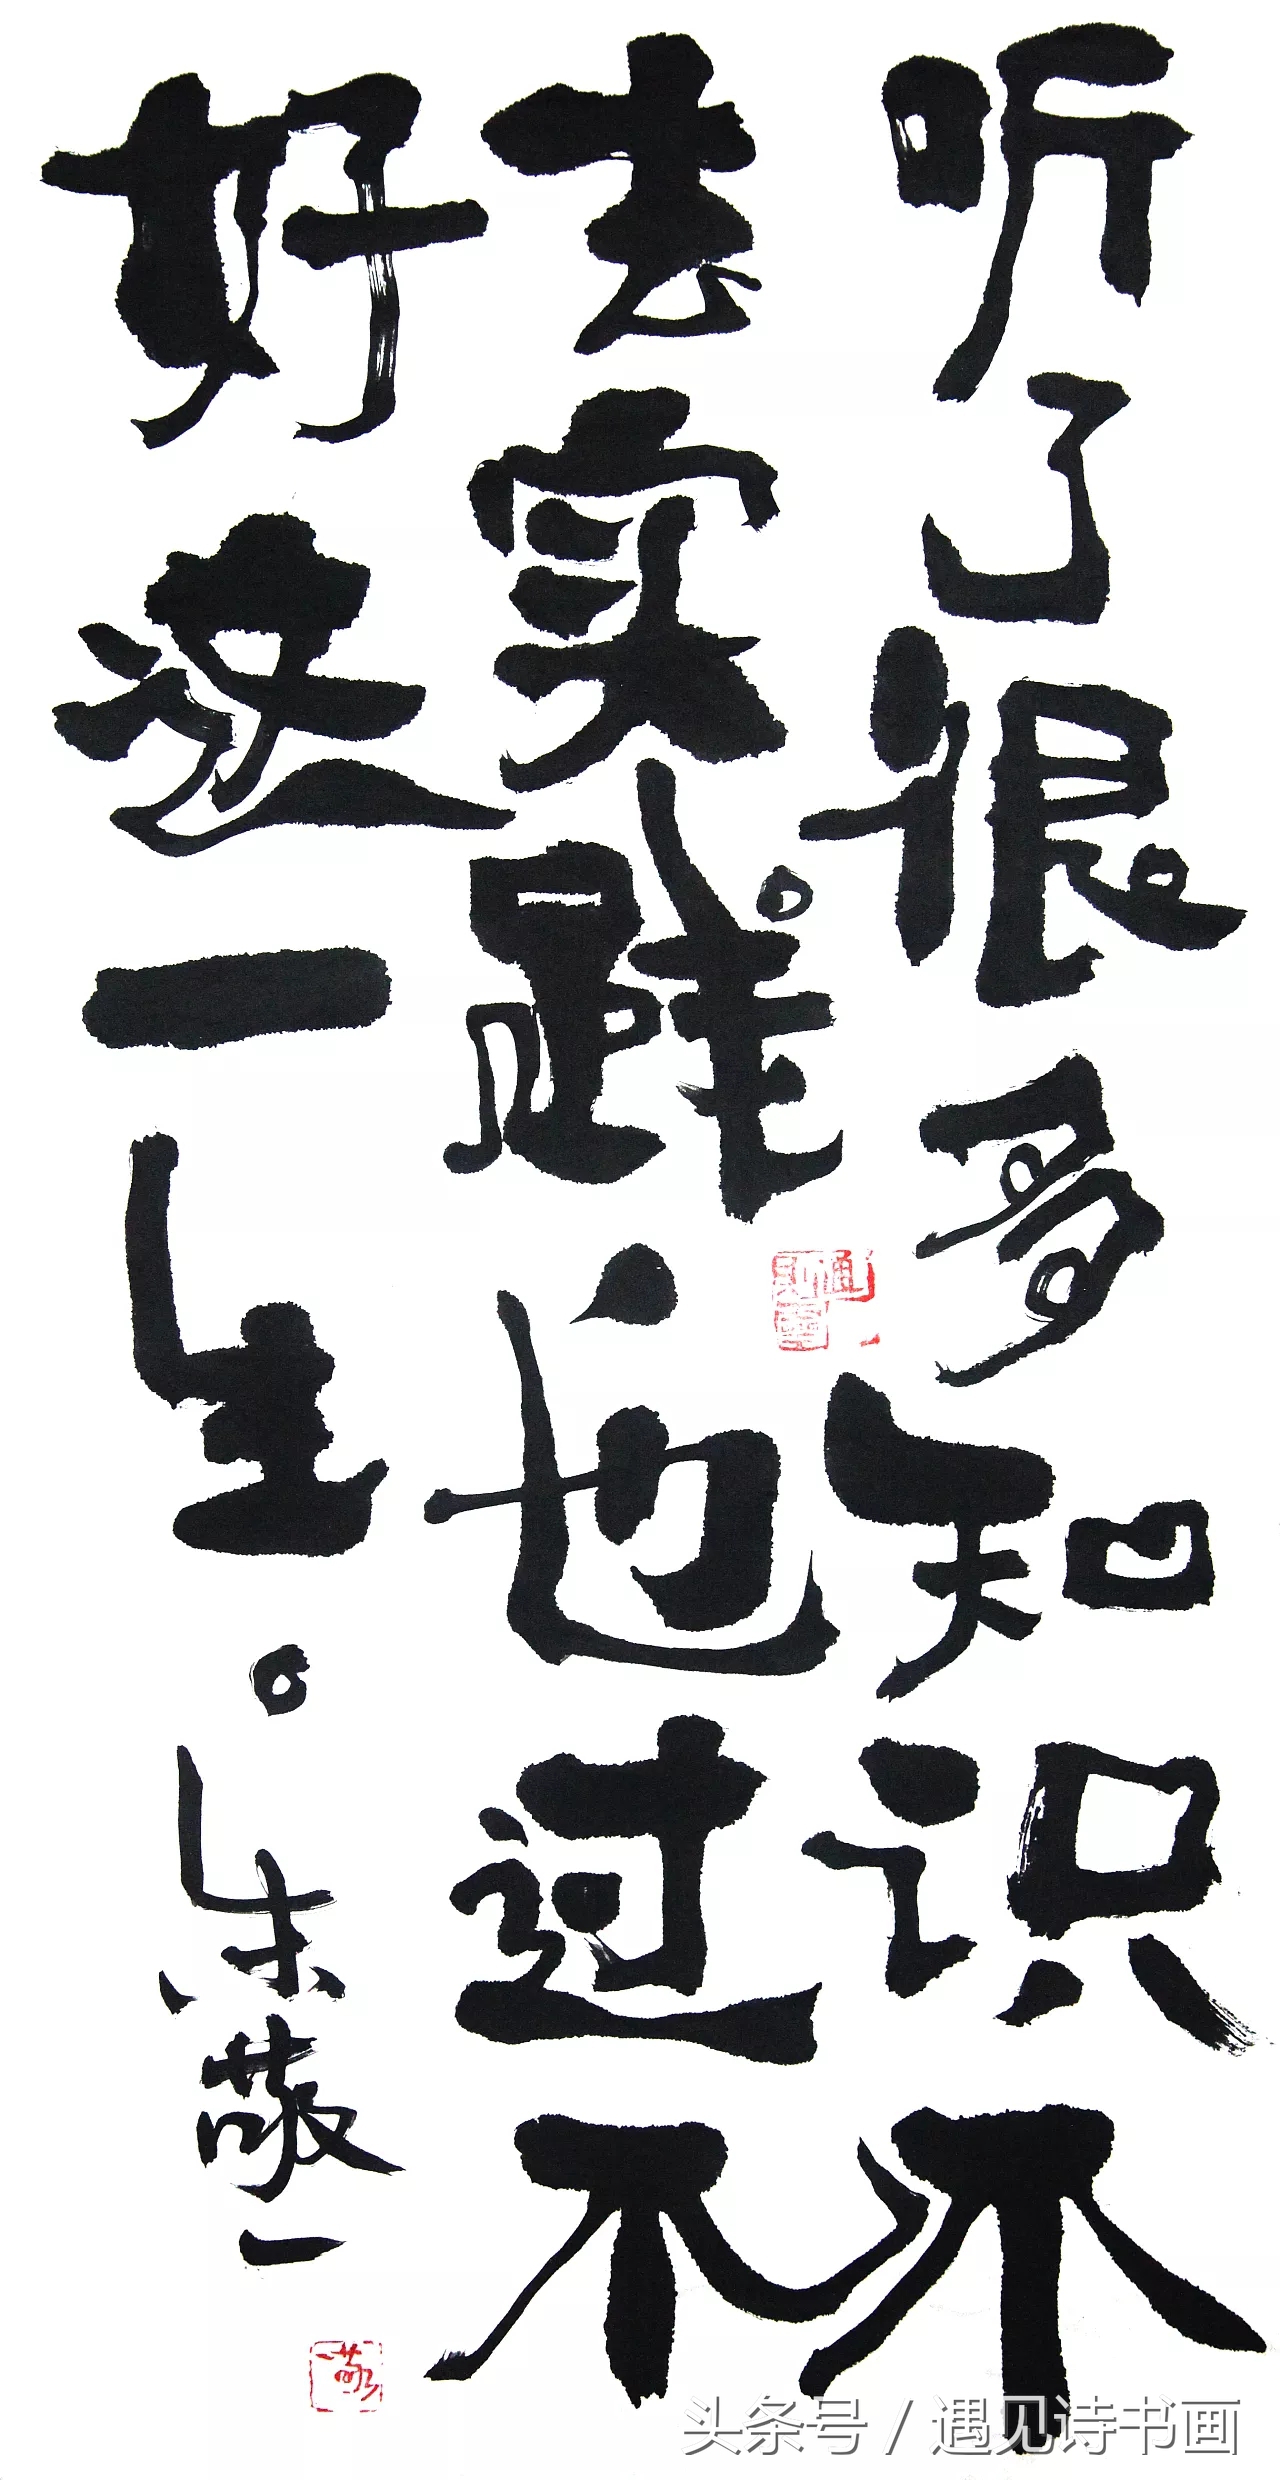 听了很多知识不
去实践。也过不
好这一生。朱敬一
通则灵
敬
头条号 / 遇见诗书画